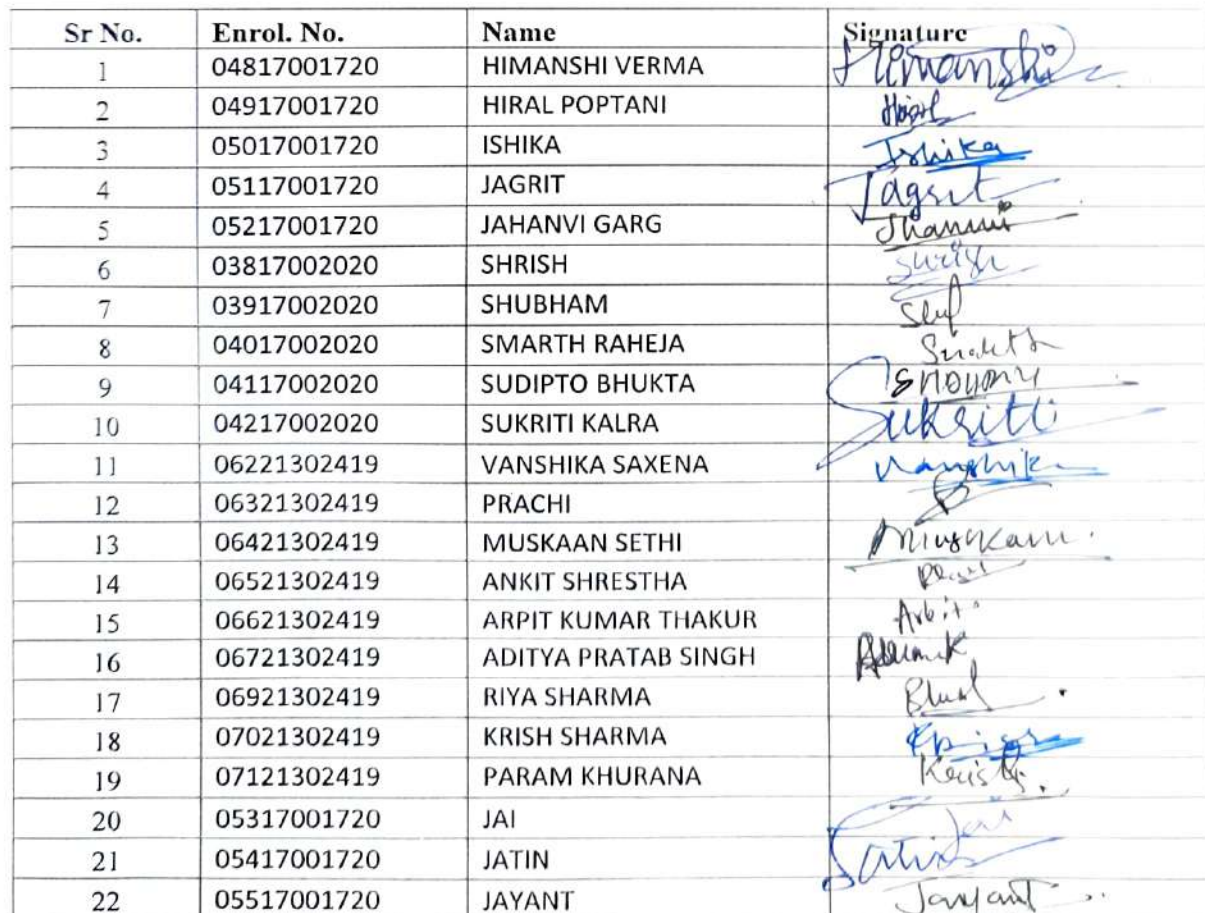 Sr No. Enrol. No. Name Signature
1 04817001720 HIMANSHI VERMA Himanshi
2 04917001720 HIRAL POPTANI Hiral
3 05017001720 ISHIKA Ishika
4 05117001720 JAGRIT Jagrit
5 05217001720 JAHANVI GARG
6 03817002020 SHRISH Shrish
7 03917002020 SHUBHAM
8 04017002020 SMARTH RAHEJA
9 04117002020 SUDIPTO BHUKTA
10 04217002020 SUKRITI KALRA Sukriti
11 06221302419 VANSHIKA SAXENA Vanshika
12 06321302419 PRACHI
13 06421302419 MUSKAAN SETHI Muskaan
14 06521302419 ANKIT SHRESTHA
15 06621302419 ARPIT KUMAR THAKUR
16 06721302419 ADITYA PRATAB SINGH
17 06921302419 RIYA SHARMA
18 07021302419 KRISH SHARMA
19 07121302419 PARAM KHURANA
20 05317001720 JAI Jai
21 05417001720 JATIN Jatin
22 05517001720 JAYANT Jayant